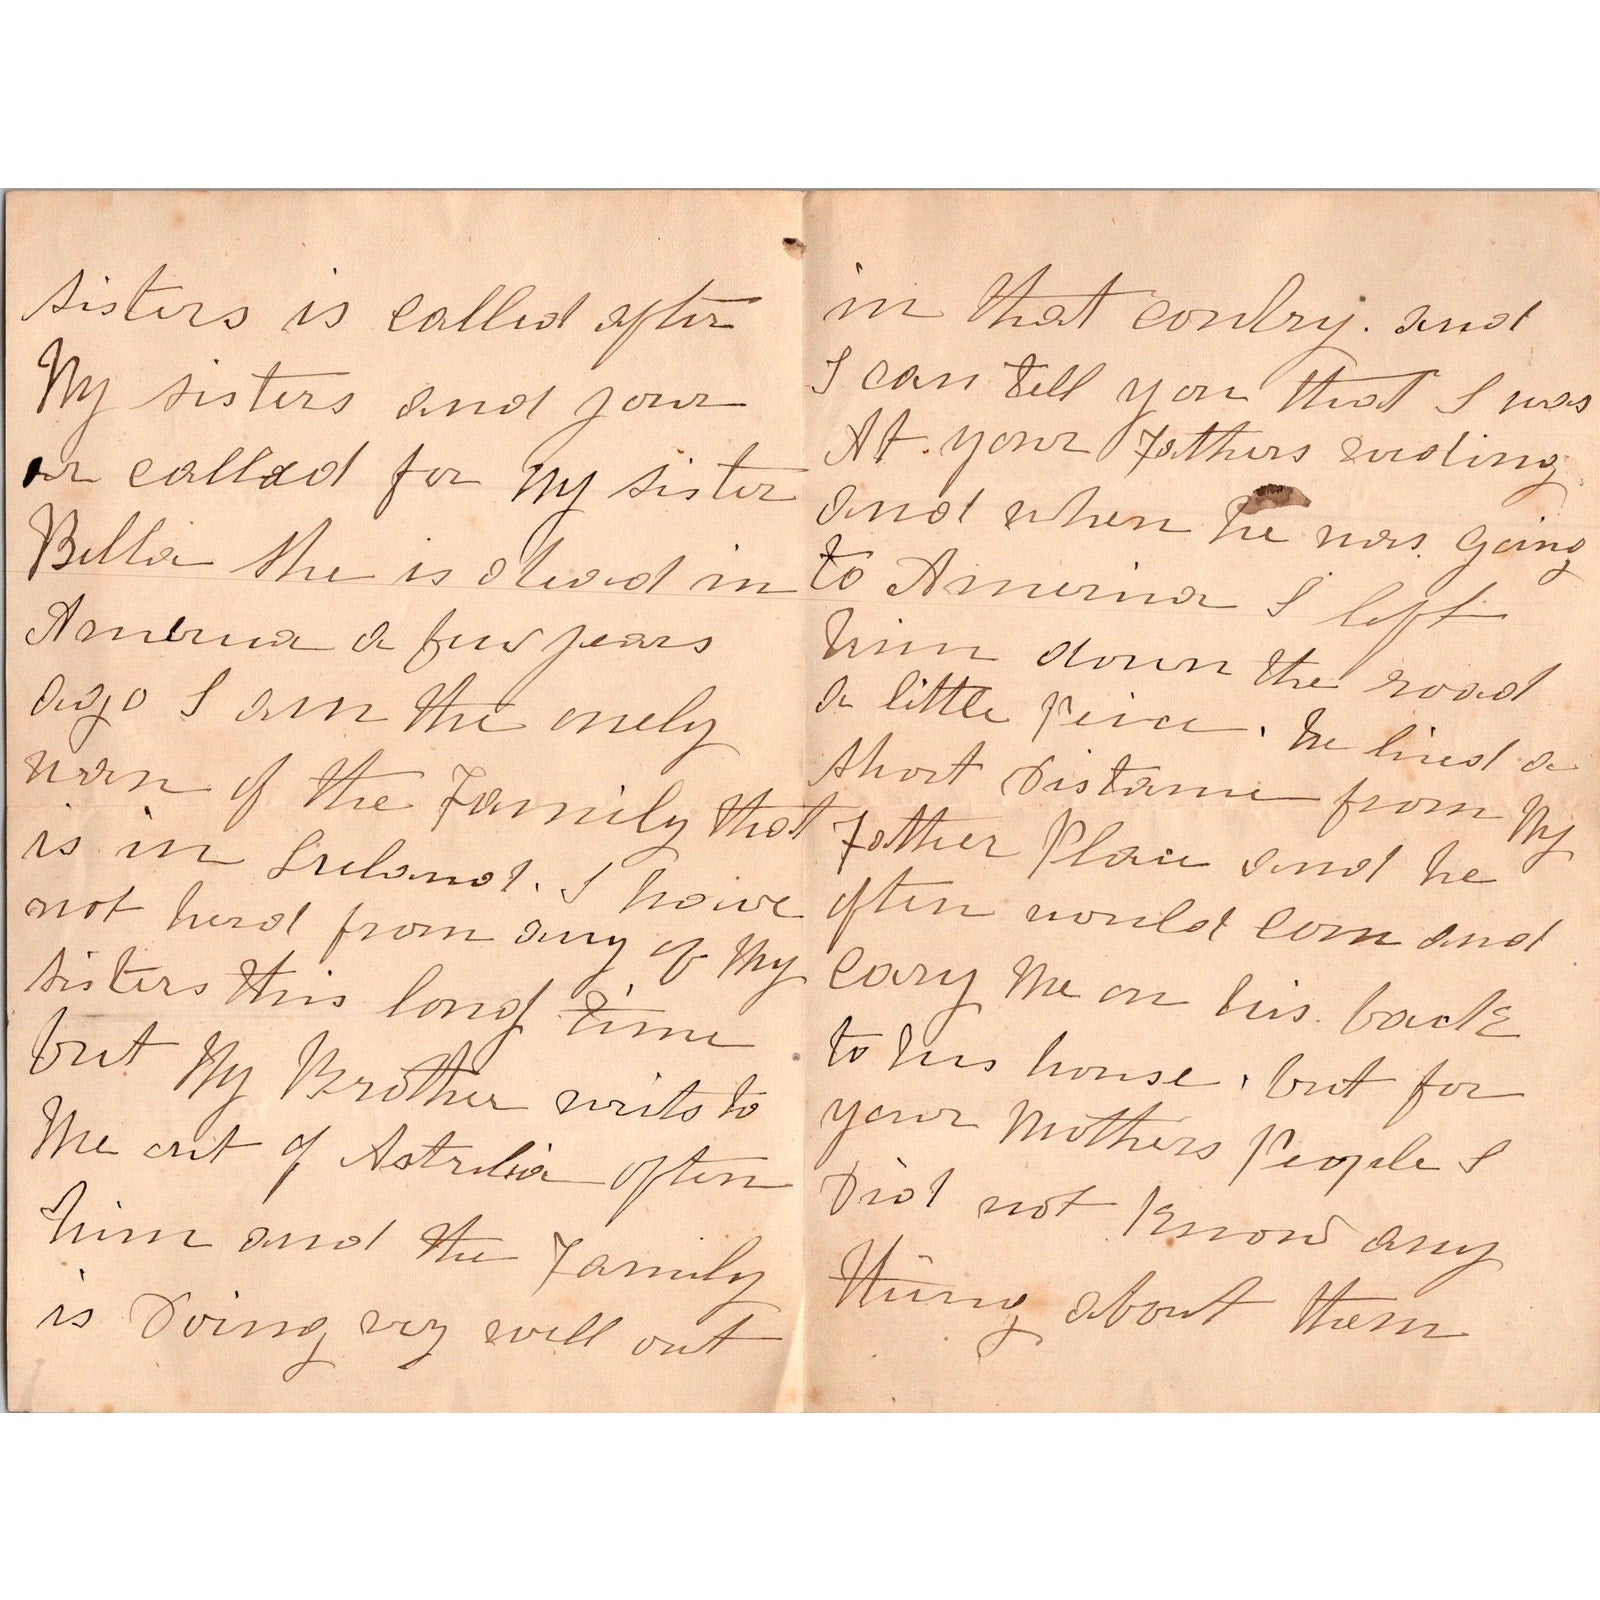 sisters is called after
My sisters and your
or called for My sister
Bella she is dead in
America a few years
ago I am the onely
wan of the Family that
is in Ireland. I haive
not herd from any of My
sisters this long time
but My Brother writs to
Me out of Astrilia often
him and the Family
is Doing very well out
in that contry. and
I can tell you that I was
At your Fathers wading
and when he was going
to America I left
him down the road
a little peice. he lived a
short Distance from My
Father Place and he
often would com and
cary Me on his back
to his house. but for
your Mothers People I
Did not Know any
thing about them